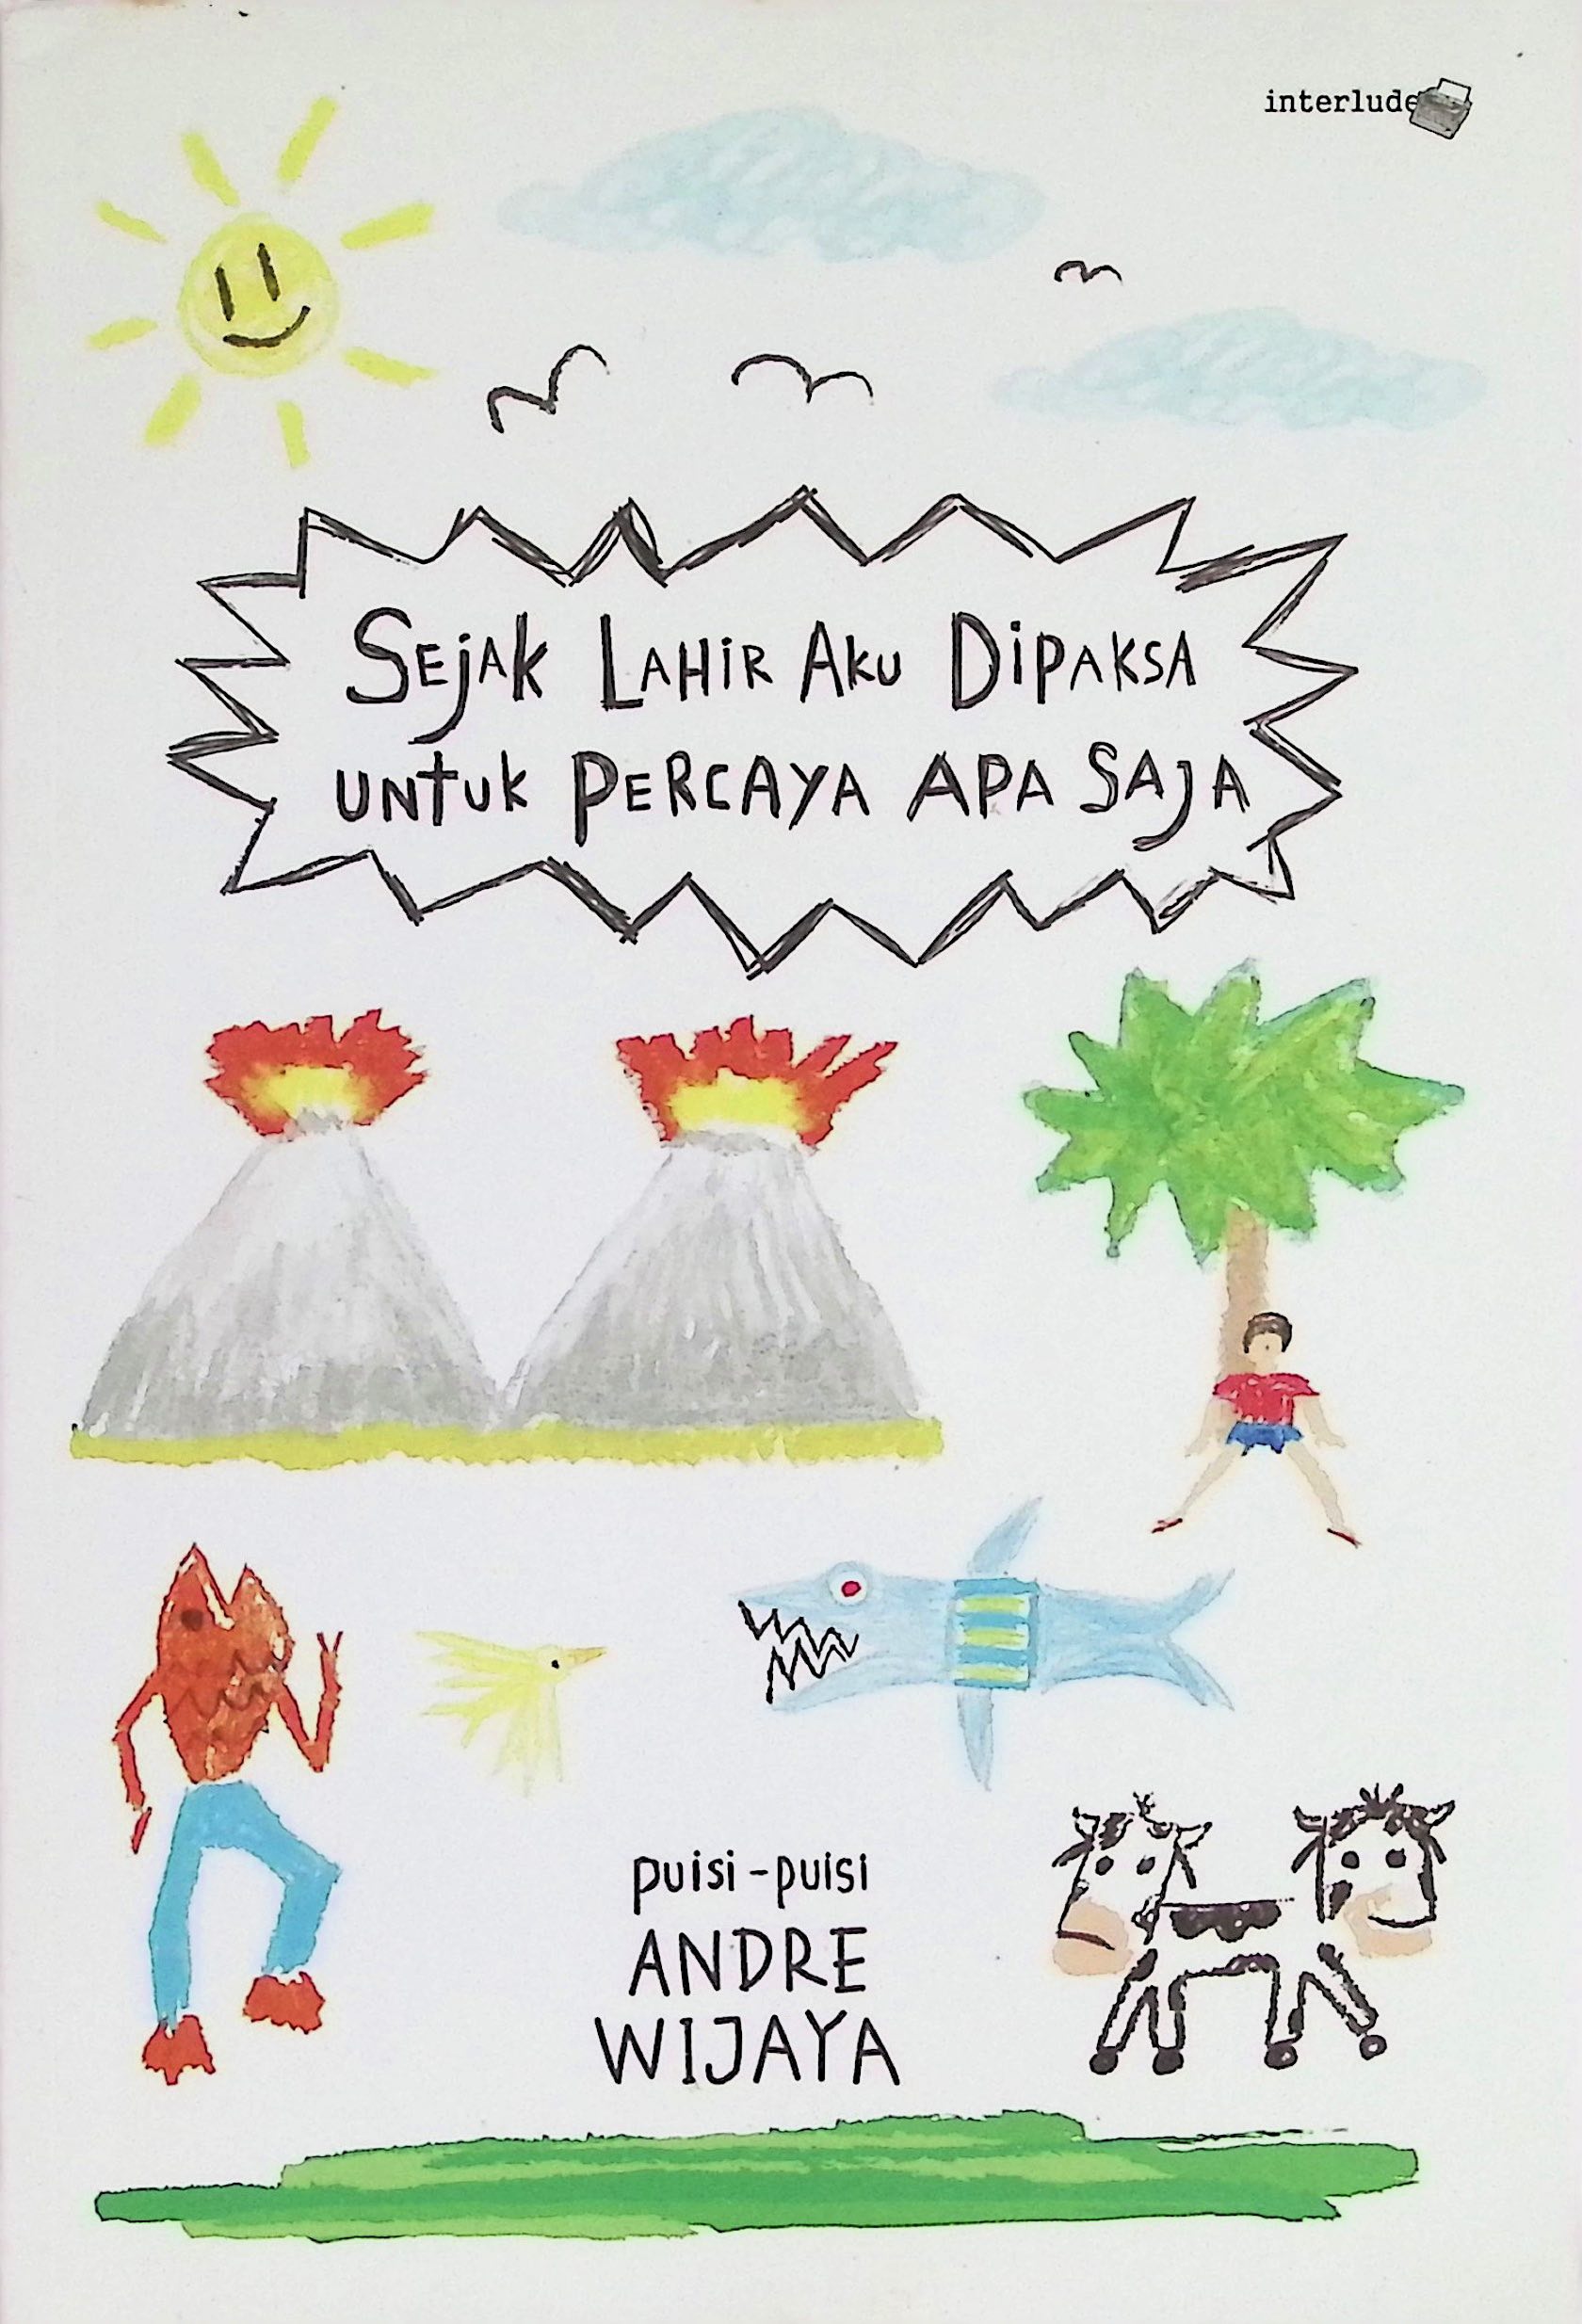 interlude
SEjAK LAHiR AKu DiPAKSA
uNtuK PERCAYA APA SAJA
puisi-puisi
ANDRE
WIJAYA